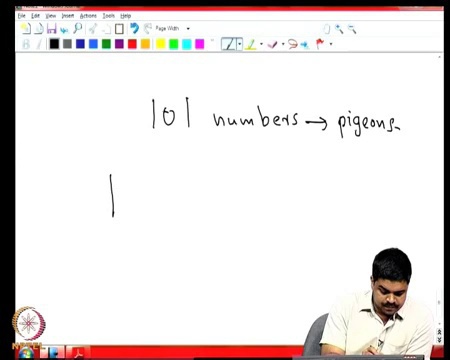 File Edit View Insert Actions Tools Help
Page Width
101 numbers → pigeons.
|